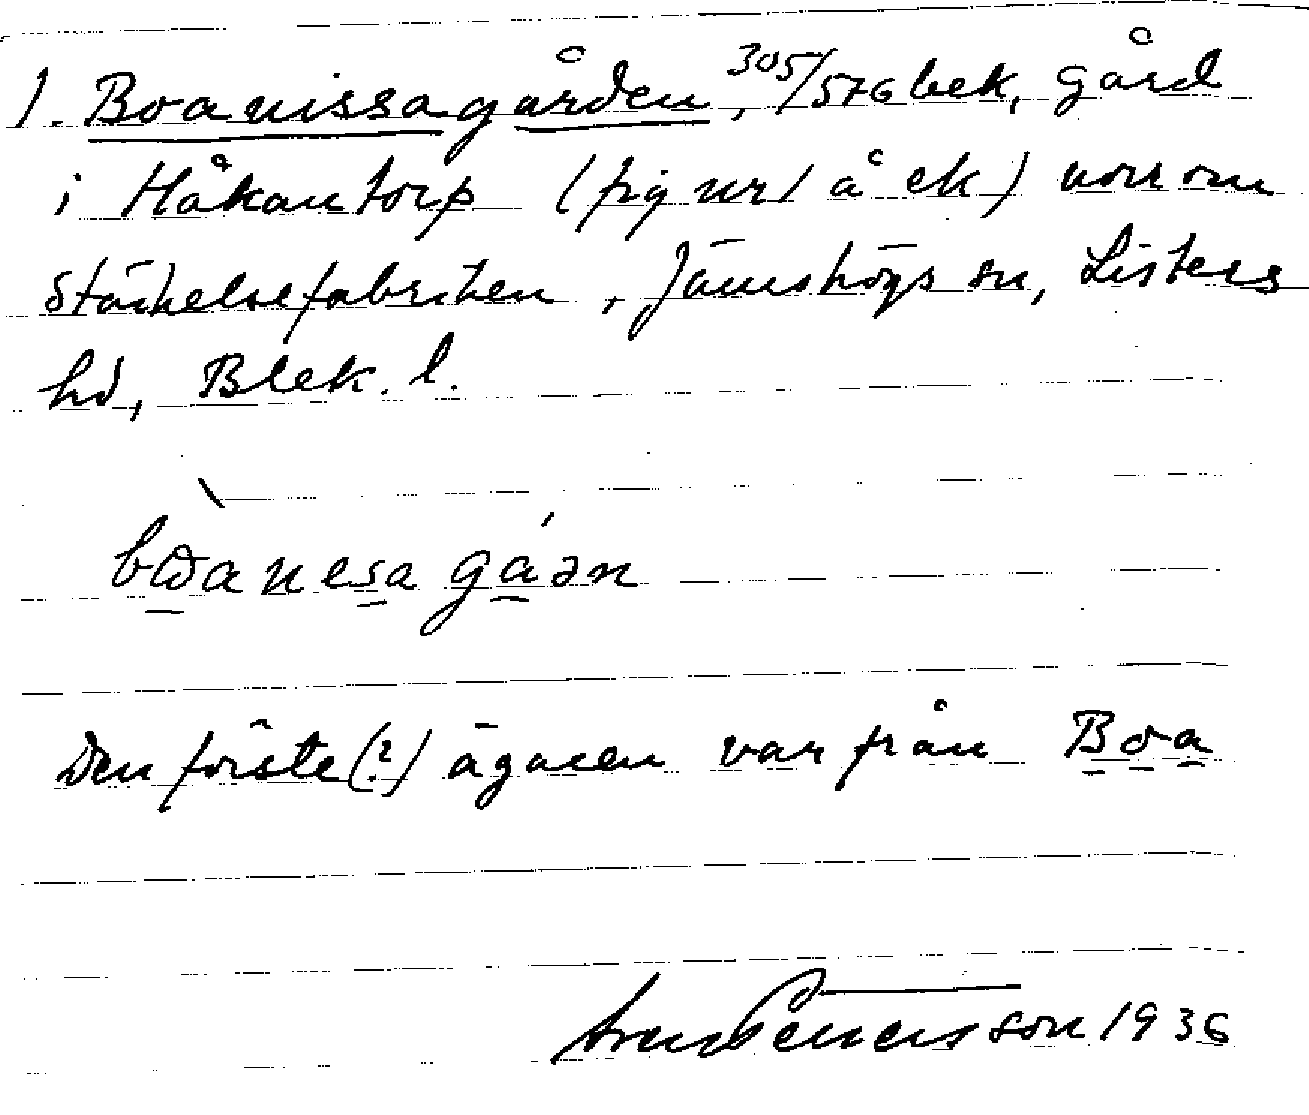 1. Boanissagården, 305/576 bek, gård
i Håkantorp (fig nr 1 å ek) norr om
stärkelsefabriken, Jämshögs sn, Listers
hd, Blek. l.
Den förste (?) ägaren var från Boa
1936